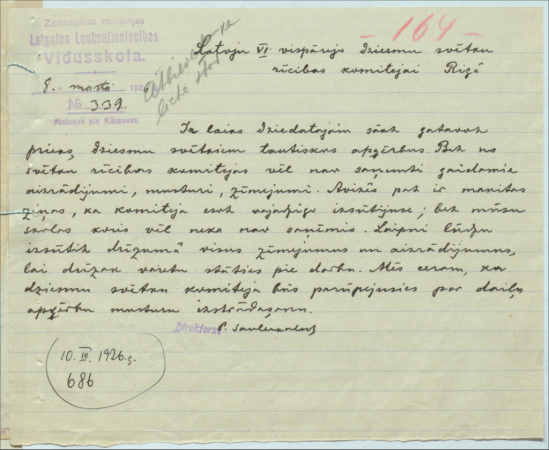 Zemkopības ministrijas
Latgales Lauksaimniecības
Vidusskola.
8. marta 1926
№ 339.
Malnavā pie Kārsavas.
164
Atbildēts
Latvju VI vispārējo dziesmu svētku
rīcības komitejai Rīgā
Ir laiks dziedātājām sākt gatavot
priekš dziesmu svētkiem tautiskos apģērbus. Bet no
svētku rīcības komitejas vēl nav saņemti gaidāmie
aizrādījumi, musturi, zīmējumi. Avīzēs pat ir manītas
ziņas, ka komiteja esot vajadzīgo izsūtījuse; bet mūsu
skolas koris vēl neka nav saņēmis. Laipni lūdzu
izsūtīt drīzumā visus zīmējumus un aizrādījumus,
lai drīzāk varētu stāties pie darba. Mēs ceram, ka
dziesmu svētku komiteja būs parūpējusies par daiļu
apģērbu musturu izstrādāšanu.
Direktors P.
10. III. 1926.g.
686